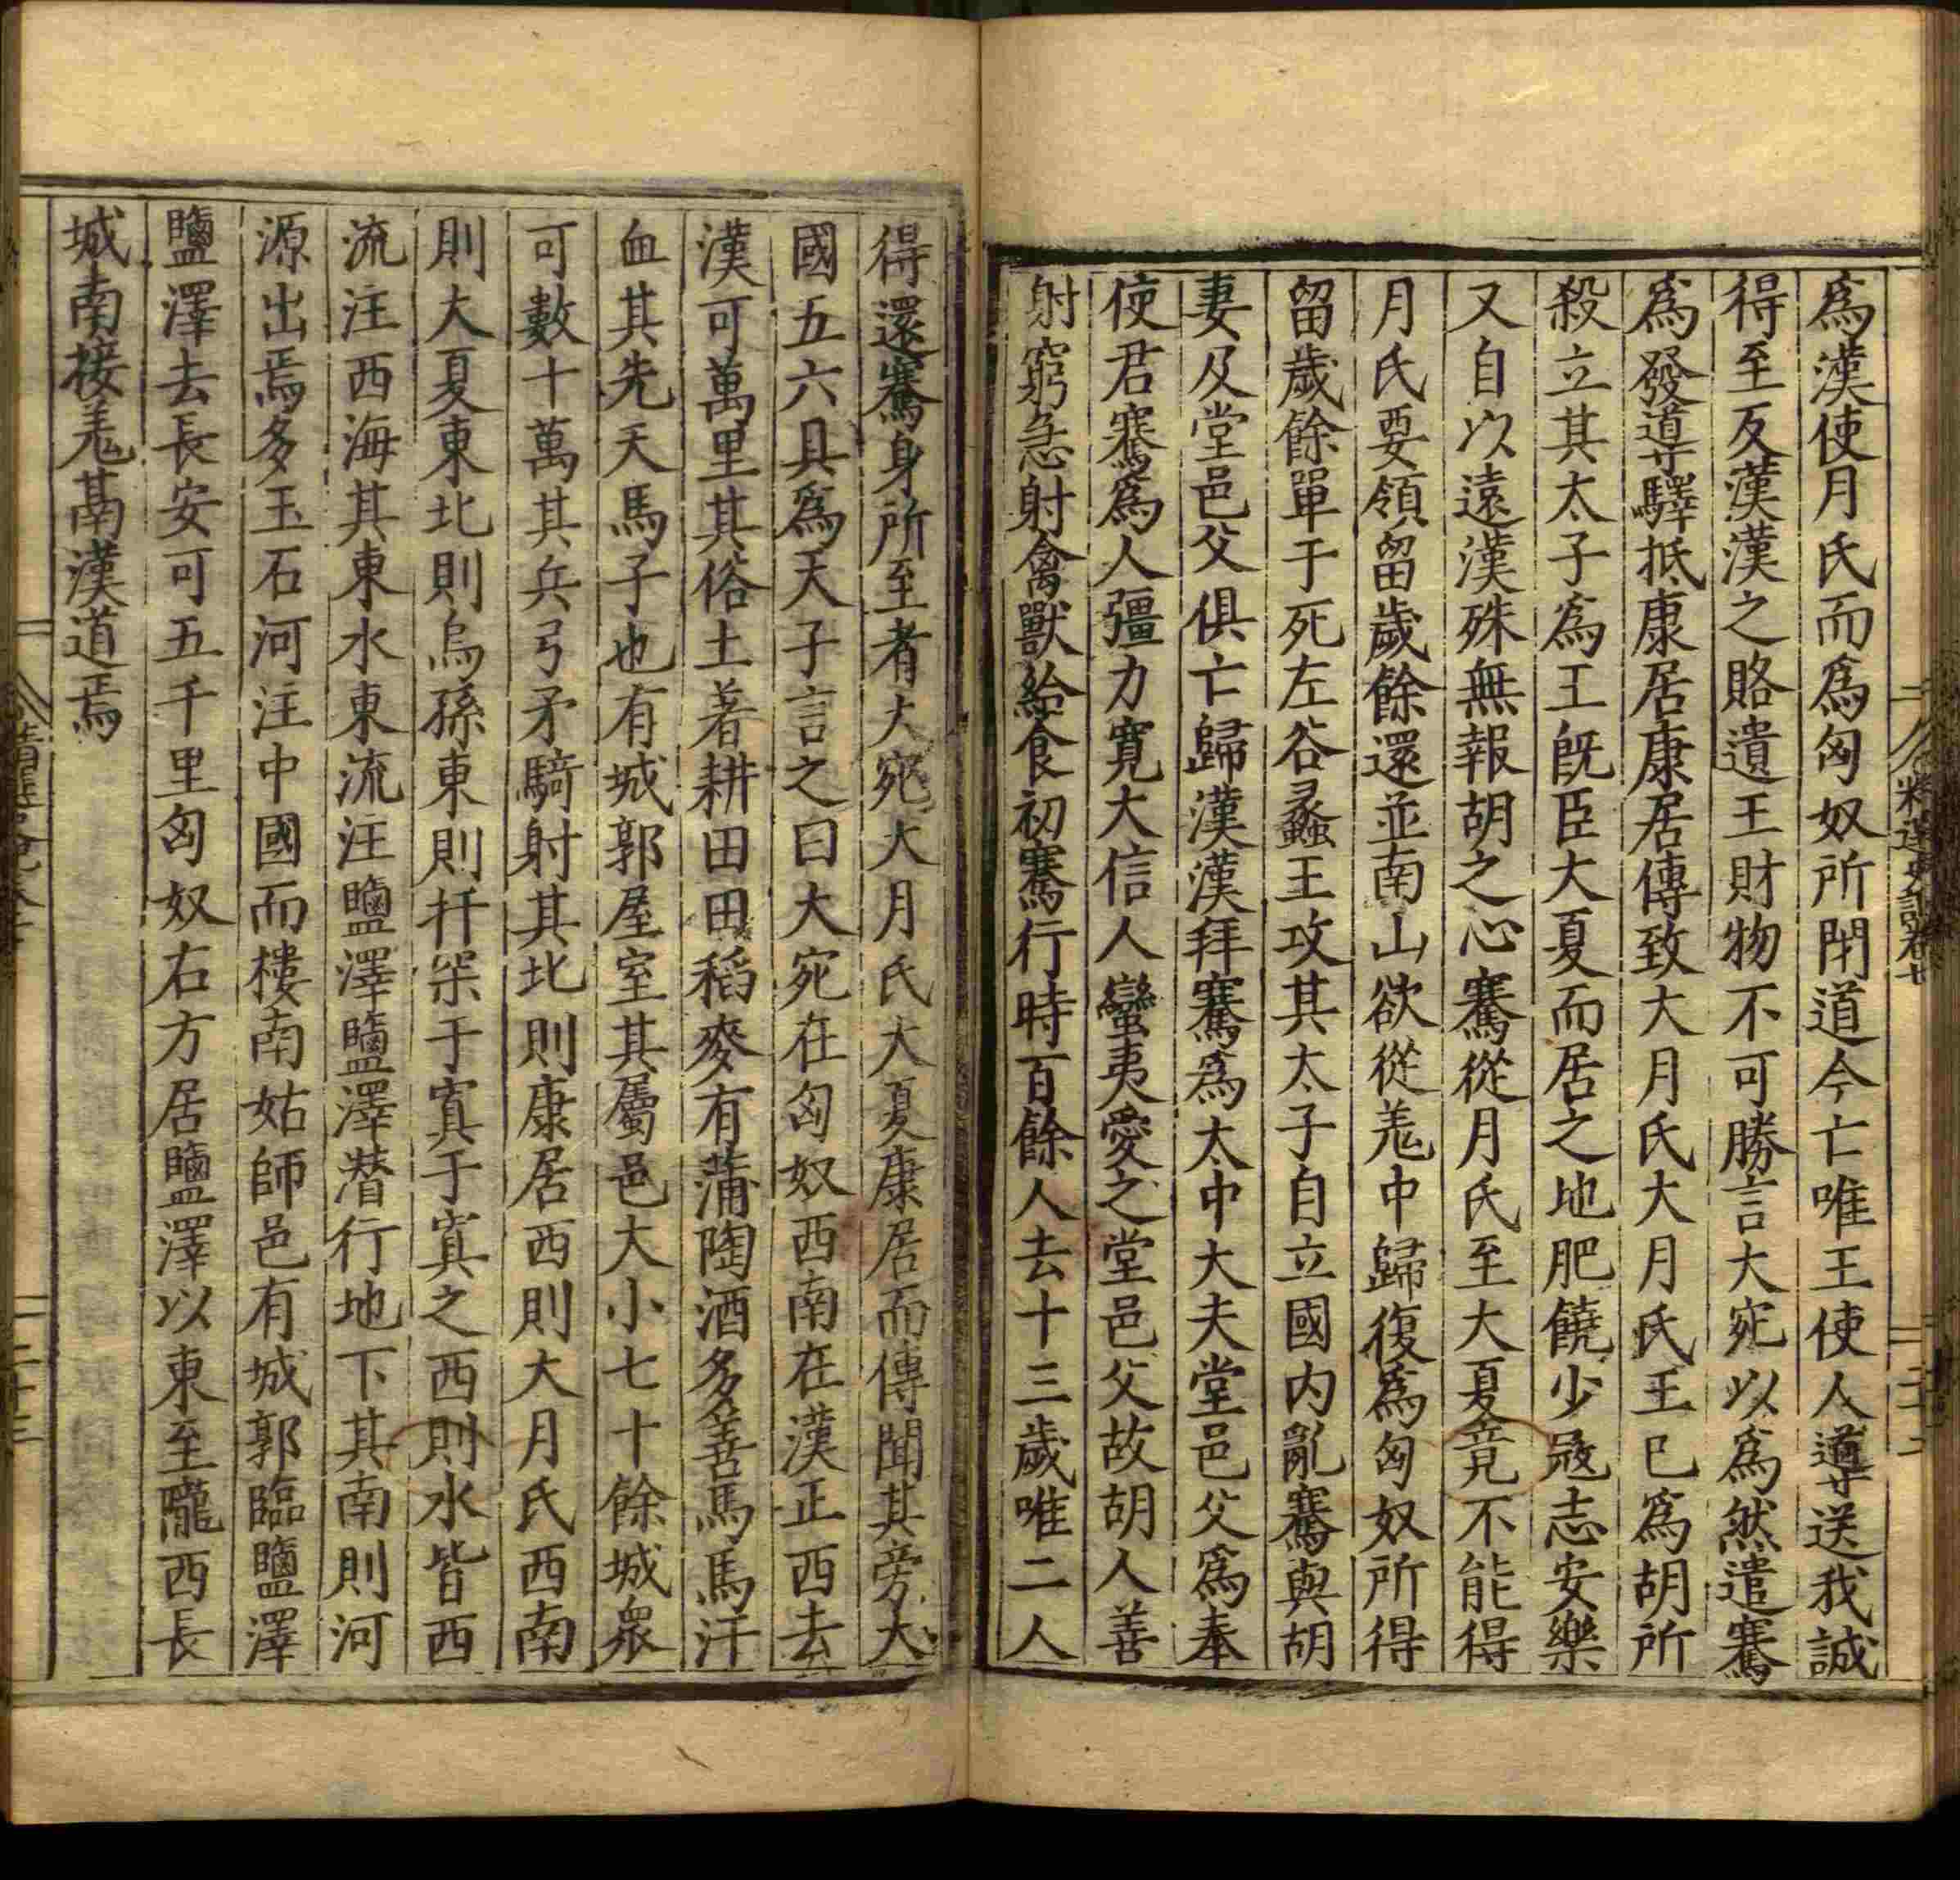 爲漢使月氏而爲匈奴所閉道今亡唯王使人導送我誠
得至反漢漢之賂遺王財物不可勝言大宛以爲然遣騫
爲發導驛抵康居康居傳致大月氏大月氏王已爲胡所
殺立其太子爲王旣臣大夏而居之地肥饒少寇志安樂
又自以遠漢殊無報胡之心騫從月氏至大夏竟不能得
月氏要領留歲餘還並南山欲從羌中歸復爲匈奴所得
留歲餘單于死左谷蠡王攻其太子自立國内亂騫與胡
妻及堂邑父俱亡歸漢漢拜騫爲太中大夫堂邑父爲奉
使君騫爲人彊力寬大信人蠻夷愛之堂邑父故胡人善
射窮急射禽獸給食初騫行時百餘人去十三歲唯二人
得還騫身所至者大宛大月氏大夏康居而傳聞其旁大
國五六具爲天子言之曰大宛在匈奴西南在漢正西去
漢可萬里其俗土著耕田田稻麥有蒲陶酒多善馬馬汗
血其先天馬子也有城郭屋室其屬邑大小七十餘城衆
可數十萬其兵弓矛騎射其北則康居西則大月氏西南
則大夏東北則烏孫東則扜罙于窴于窴之西則水皆西
流注西海其東水東流注鹽澤鹽澤潛行地下其南則河
源出焉多玉石河注中國而樓南姑師邑有城郭臨鹽澤
鹽澤去長安可五千里匈奴右方居鹽澤以東至隴西長
城南接羌鬲漢道焉